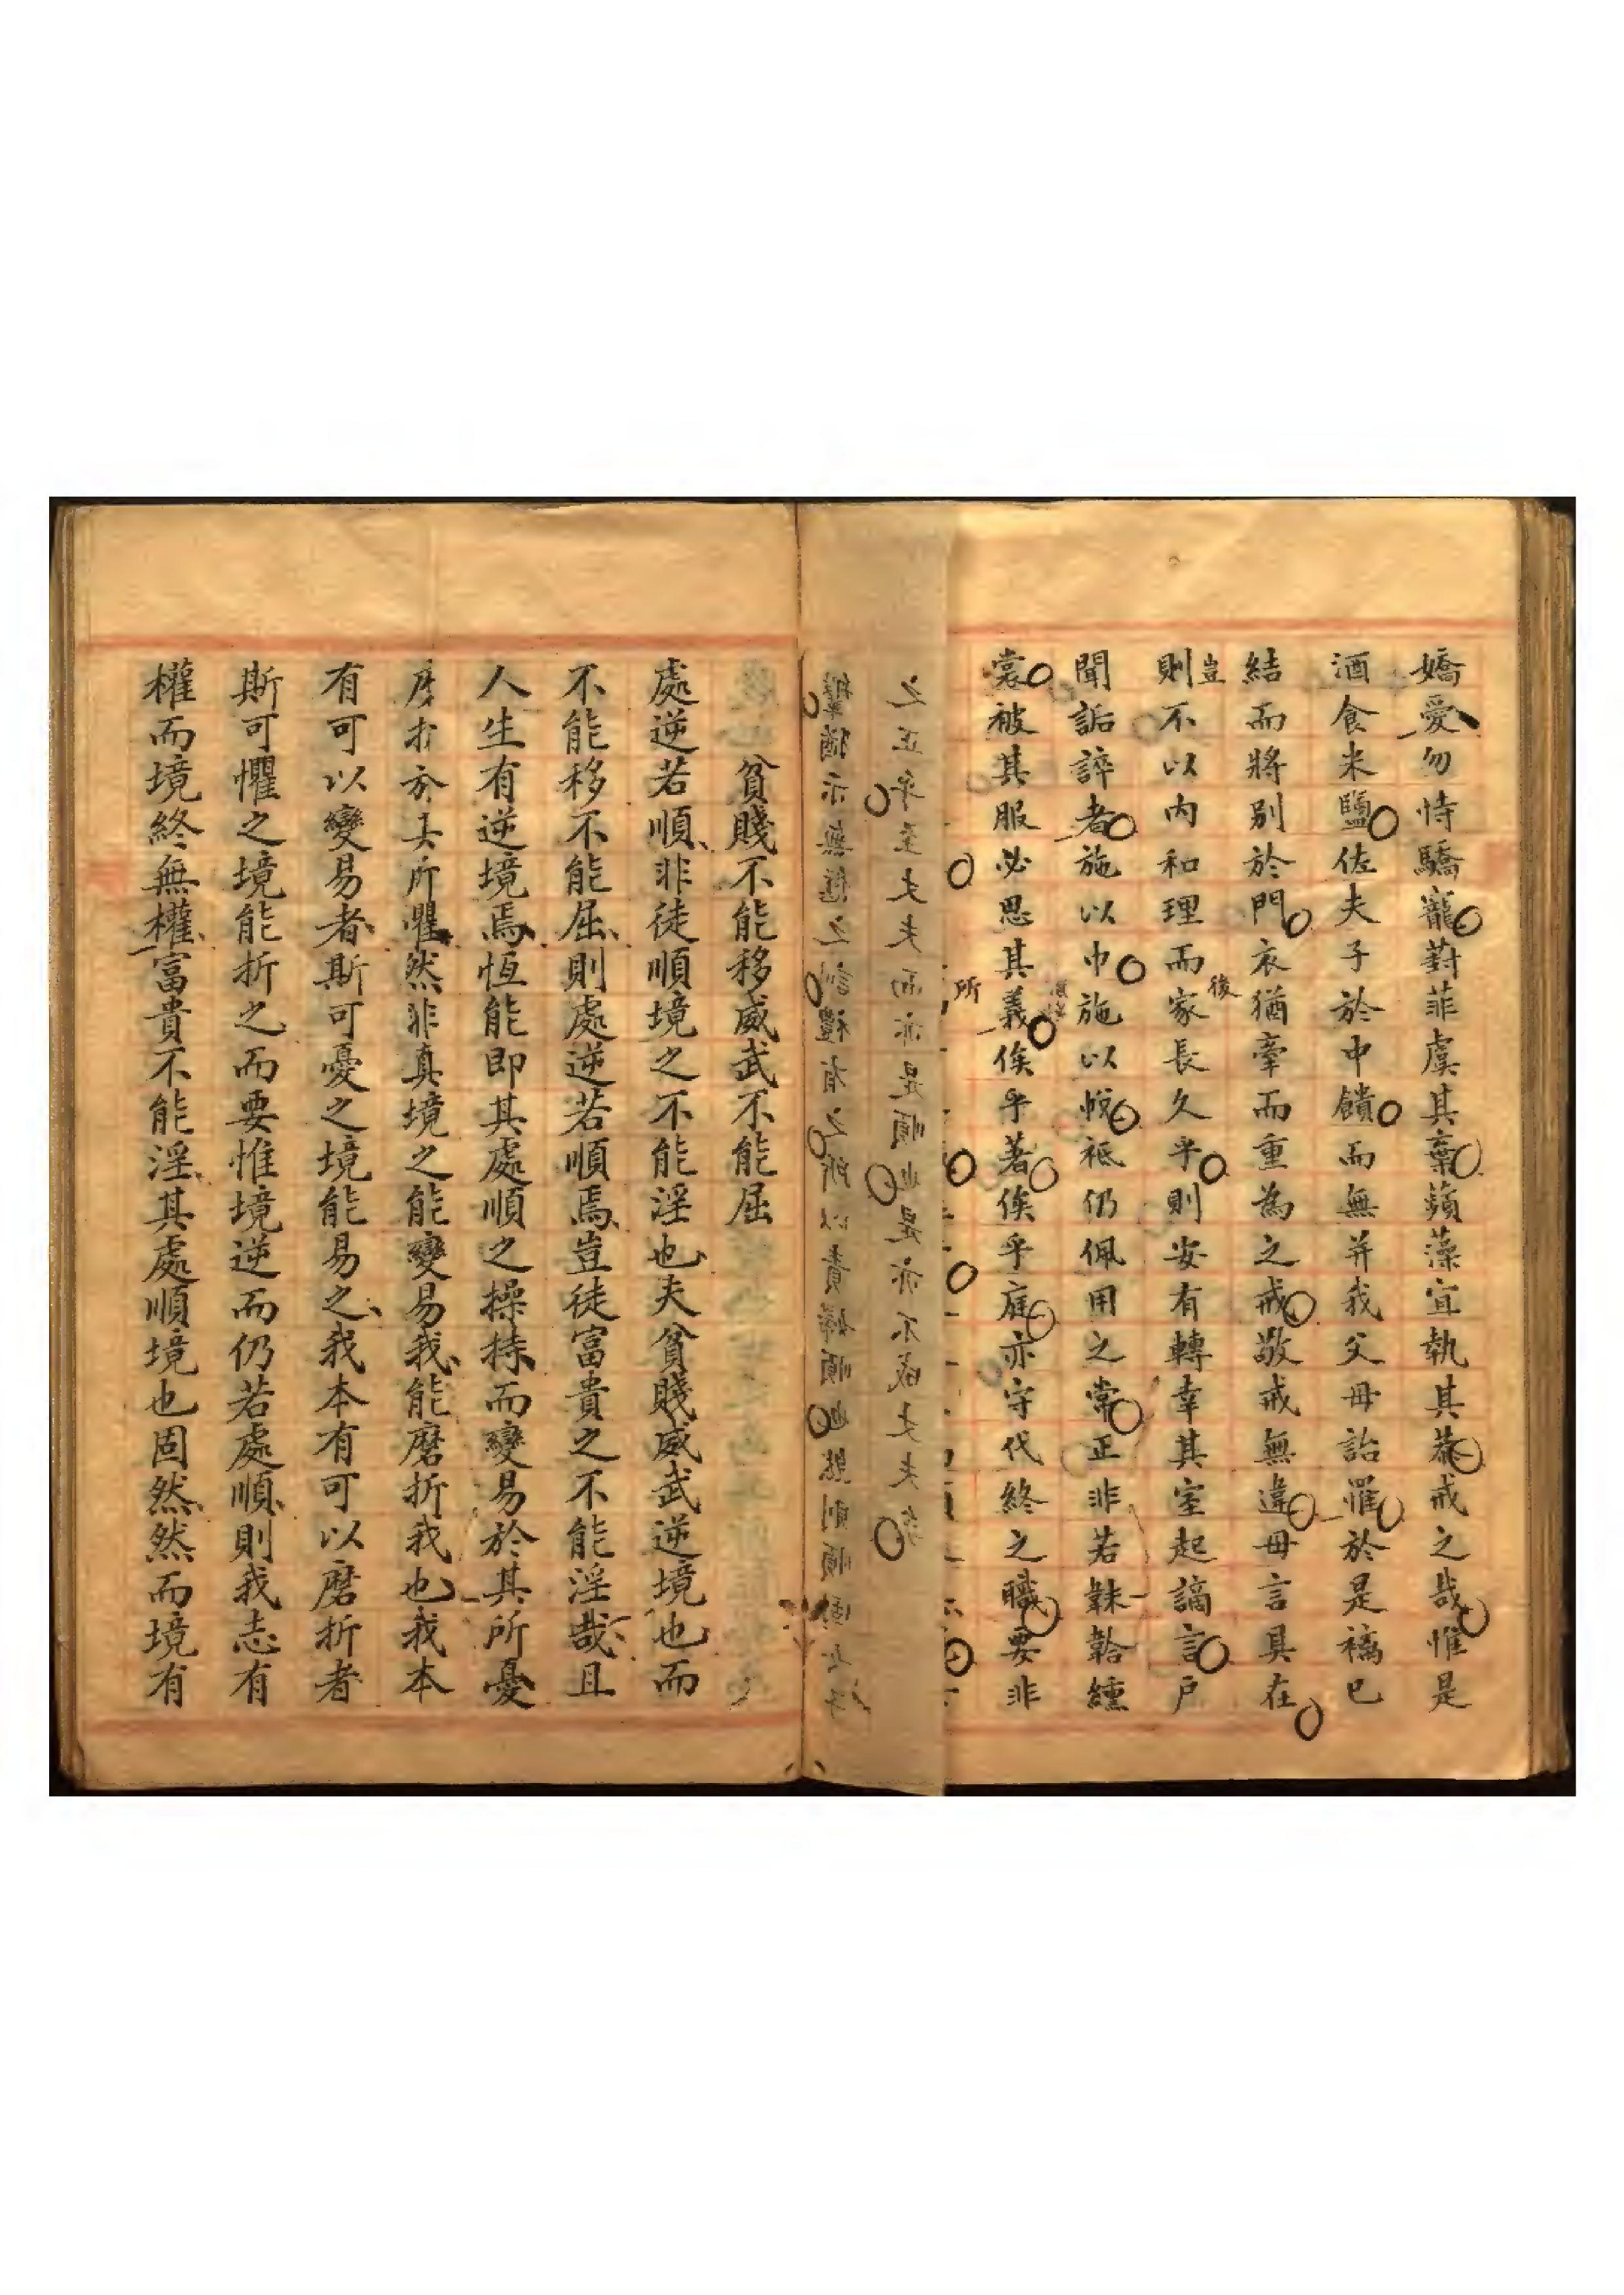 嬌愛勿恃驕寵葑菲虞其棄蘋藻宜執其恭戒之哉惟是
酒食米鹽佐夫子於中饋而無并我父母詒罹於是褵已
結而將別於門衣猶牽而重為之戒敬戒無違母言具在
豈
則不以內和理而家長久乎則安有轉幸其室起謫言戶
後
聞詬誶者施以巾施以帨袛仍佩用之常正非若韎韐纁
裳被其服必思其義俟乎著俟乎庭亦守代終之職要非
所
之正乎至夫夫而亦是順也是亦不成夫夫矣
有之所以責婦順也然則順固女子
貧賤不能移威武不能屈
處逆若順非徒順境之不能淫也夫貧賤威武逆境也而
不能移不能屈則處逆若順焉豈徒富貴之不能淫哉且
人生有逆境焉恆能即其處順之操持而變易於其所憂
磨折於其所懼然非真境之能變易我能磨折我也我本
有可以變易者斯可憂之境能易之我本有可以磨折者
斯可懼之境能折之而要惟境逆而仍若處順則我志有
權而境終無權富貴不能淫其處順境也固然然而境有